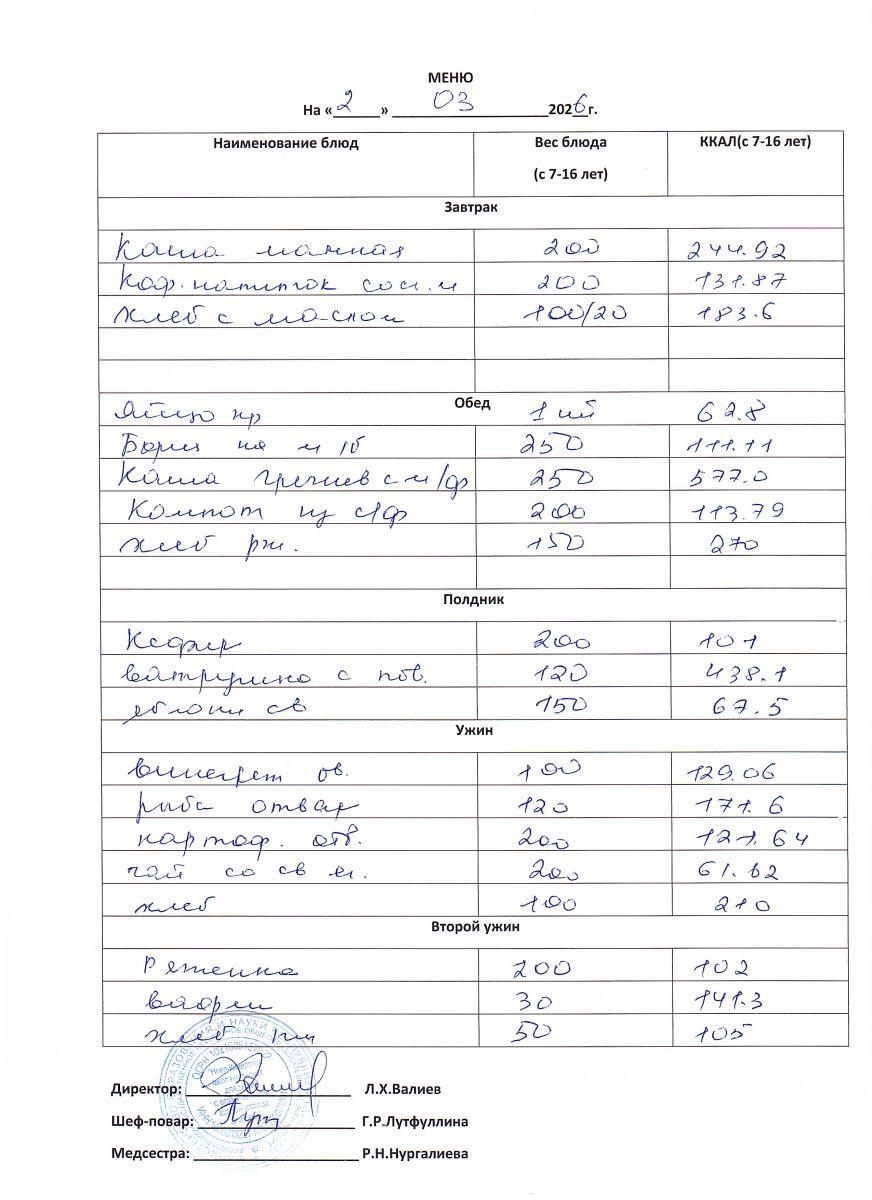 МЕНЮ
На «2» 03 2026 г.
Наименование блюд Вес блюда (с 7-16 лет) ККАЛ(с 7-16 лет)
Завтрак
Каша манная 200 244.92
Коф. напиток со сг. м 200 131.87
Хлеб с маслом 100/20 183.6
Обед
Яйцо 1 шт 62.8
Борщ на м/б 250 111.11
Каша гречнев с м/ф 250 577.0
Компот из с/ф 200 113.79
хлеб рж. 150 270
Полдник
Кефир 200 101
ватрушка с пов. 120 438.1
яблоки св 150 67.5
Ужин
винегрет ов. 100 129.06
рыба отвар 120 171.6
картоф. отв. 200 121.64
чай со св 200 61.62
хлеб 100 210
Второй ужин
Ряженка 200 102
вафли 30 141.3
хлеб 50 105
Директор: Л.Х.Валиев
Шеф-повар: Г.Р.Лутфуллина
Медсестра: Р.Н.Нургалиева